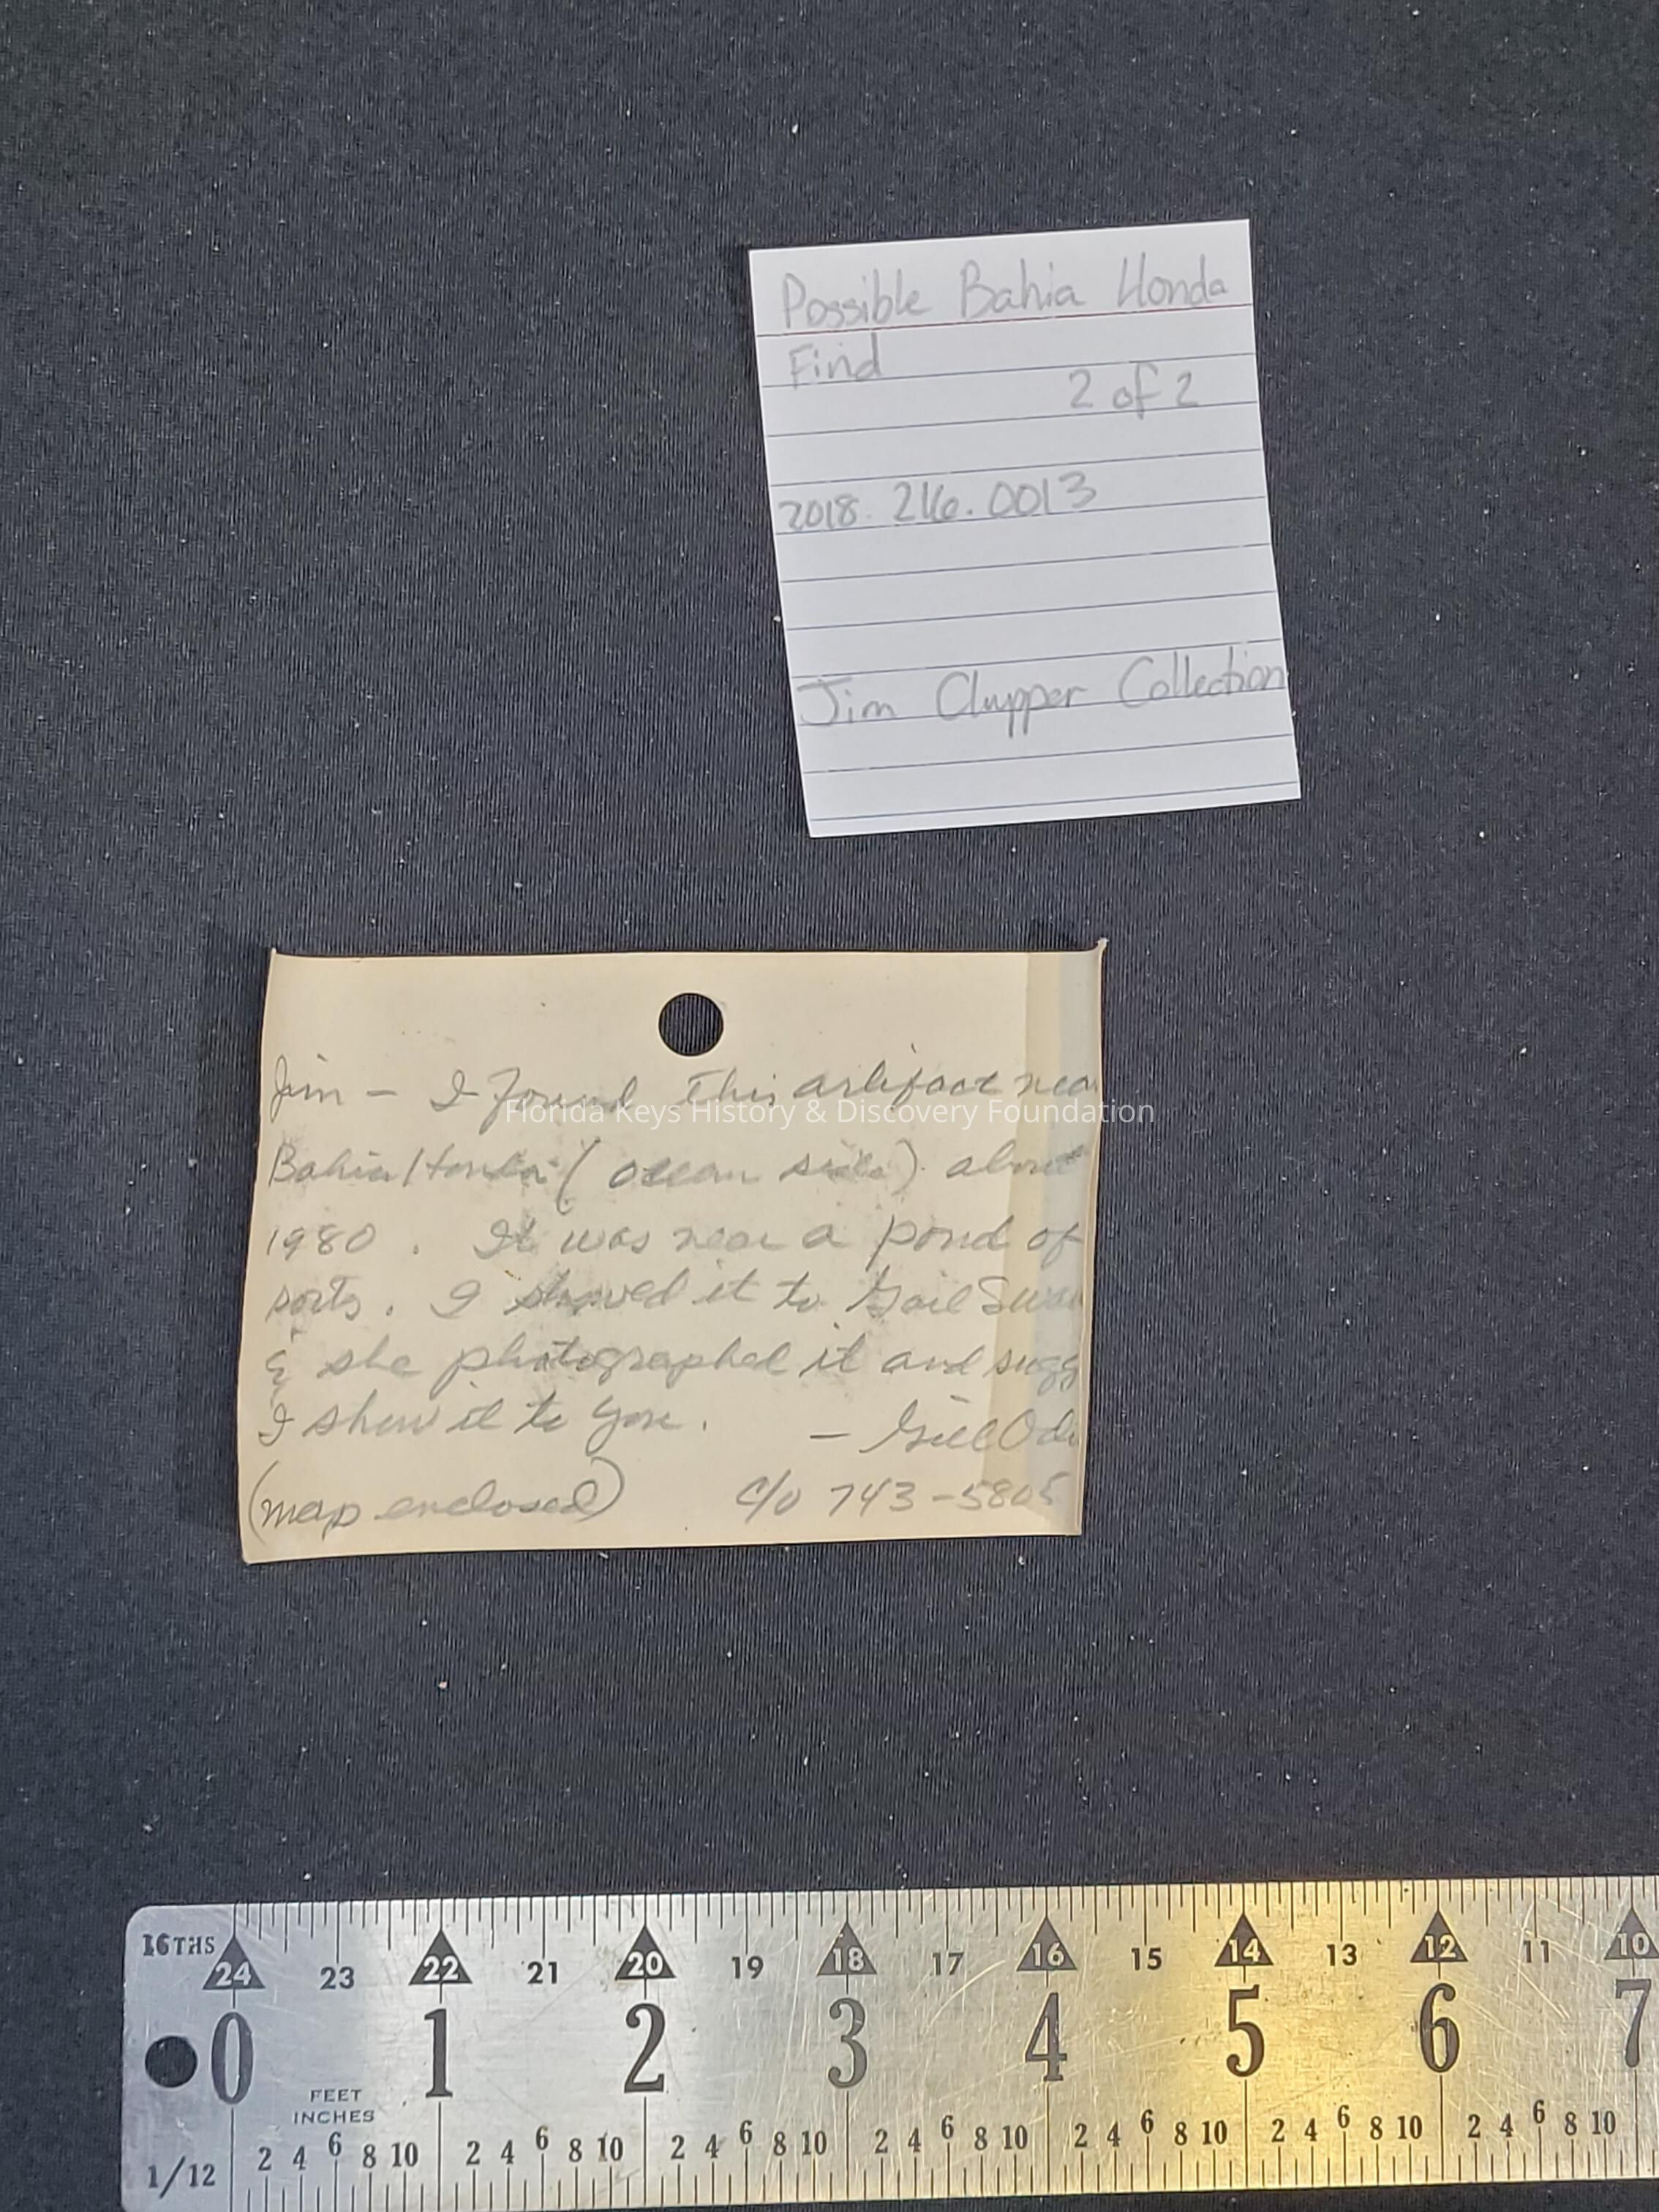 Possible Bahia Honda
Find
2 of 2
2018.216.0013
Jim Clupper Collection
Jim – I found this artifact nea
Florida Keys History & Discovery Foundation
Bahia Honda (ocean side) about
1980. It was near a pond of
sorts. I showed it to Gail Swan
& she photographed it and sugg
I show it to you. –
(map enclosed) c/o 743-5805
16THS 24 23 22 21 20 19 18 17 16 15 14 13 12 11 10
0 1 2 3 4 5 6 7
FEET
INCHES
1/12 2 4 6 8 10 2 4 6 8 10 2 4 6 8 10 2 4 6 8 10 2 4 6 8 10 2 4 6 8 10 2 4 6 8 10